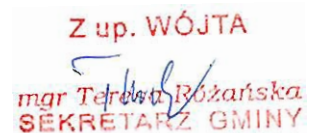 Z up. WÓJTA
mgr Teresa Różańska
SEKRETARZ GMINY